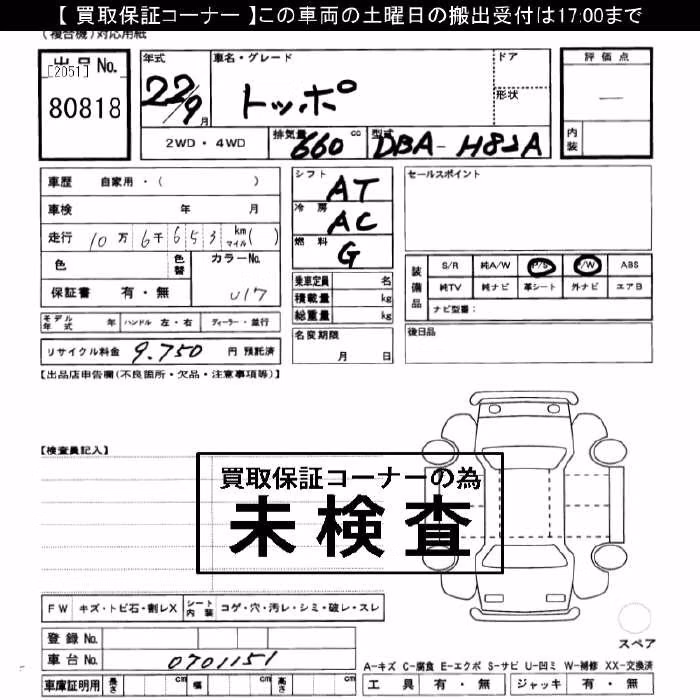 【 買取保証コーナー 】この車両の土曜日の搬出受付は17:00まで
(複合機)対応用紙
出品No.
[2051]
80818
年式
22/9 月
車名・グレード
トッポ
ドア
形状
評価点
—
内装
2WD・4WD
排気量 660 cc
型式 DBA-H82A
車歴 自家用・( )
車検 年 月
走行 10万 6千 6 5 3 km マイル ( )
色
色替
カラーNo.
U17
保証書 有・無
シフト AT
冷房 AC
燃料 G
乗車定員 名
積載量 kg
総重量 kg
セールスポイント
装備品
S/R 純A/W P/S P/W ABS
純TV 純ナビ 革シート 外ナビ エアB
ナビ型番：
モデル年式 年 ハンドル 左・右 ディーラー・並行
リサイクル料金 9.750 円 預託済
名変期限
月 日
後日品
【出品店申告欄(不良箇所・欠品・注意事項等)】
【検査員記入】
買取保証コーナーの為
未検査
FW キズ・トビ石・割レX シート内装 コゲ・穴・汚レ・シミ・破レ・スレ
登録No.
車台No. 0701151
車庫証明用 長さ cm 幅 cm 高さ cm
スペア
A-キズ C-腐食 E-エクボ S-サビ U-凹ミ W-補修 XX-交換済
工具 有・無 ジャッキ 有・無